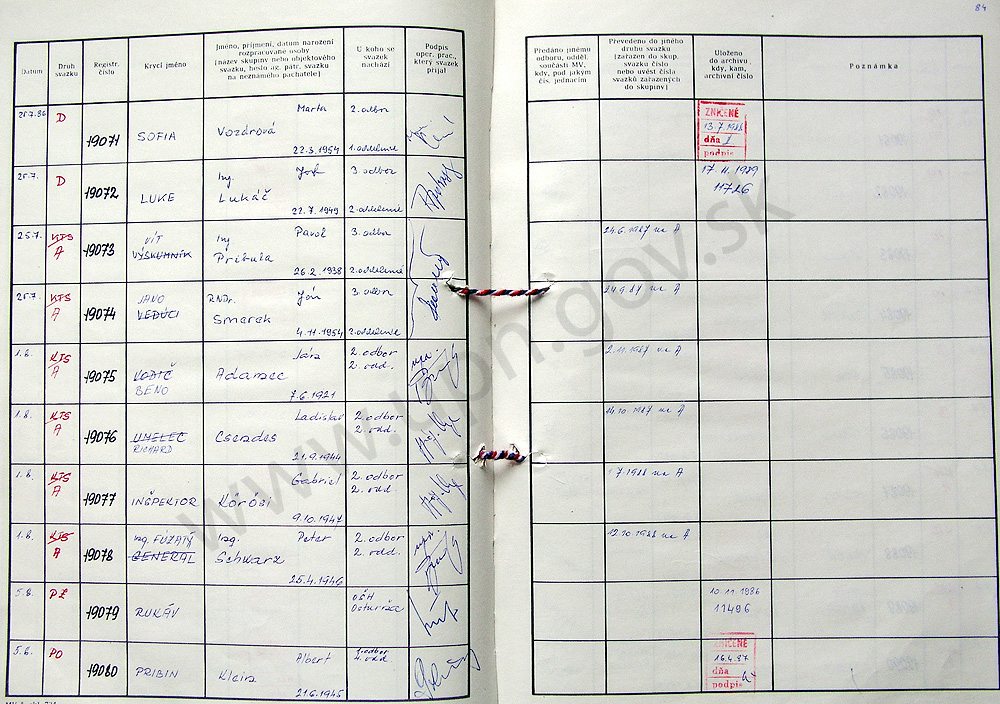 84
Datum
Druh svazku
Registr. číslo
Krycí jméno
Jméno, příjmení, datum narození
rozpracované osoby
(název skupiny nebo objektového
svazku, heslo ag. pátr. svazku
na neznámého pachatele)
U koho se
svazek
nachází
Podpis
oper. prac.,
který svazek
přijal
Předáno jinému
odboru, odděl.
součásti MV,
kdy, pod jakým
čís. jednacím
Převedeno do jiného
druhu svazku
(zařazen do skup.
svazku číslo
nebo uvést čísla
svazků zařazených
do skupiny)
Uloženo
do archivu
kdy, kam,
archivní číslo
Poznámka
25.7.86 D 19071 SOFIA Vozdrová Marta 22.3.1954 2. odbor 1. oddelenie
ZNIČENÉ
13.7.1988
dňa
podpis
25.7. D 19072 LUKE Ing. Lukáč 22.7.1949 3. odbor 2. oddelenie
17.11.1989
11726
25.7. KTS A 19073 VÍT VÝSKUMNÍK Ing Pribula Pavol 26.2.1938 3. odbor 2. oddelenie
24.6.1987 na A
25.7. KTS A 19074 JANO VEDÚCI RNDr. Smarek Ján 4.11.1954 3. odbor 2. oddelenie
24.9.87 na A
1.8. KTS A 19075 VODIČ BENO Adamec 7.6.1921 2. odbor 2. odd.
2.11.1987 na A
1.8. KTS A 19076 UMELEC RICHARD Csendes Ladislav 21.9.1944 2. odbor 2. odd.
14.10.1987 na A
1.8. KTS A 19077 INŠPEKTOR Kőrösi Gabriel 9.10.1947 2. odbor 2. odd.
7.1988 na A
1.8. KTS A 19078 ing. FÚZATÝ GENERAL Ing. Schwarz Peter 25.4.1946 2. odbor 2. odd.
12.10.1988 na A
5.8. 19079 RUKÁV OŠH
10.11.1986
11496
PO 19080 PRIBIN Klein Albert 21.6.1945 1. odbor 4. odd.
ZNIČENÉ
16.4.87
dňa
podpis
www.upn.gov.sk